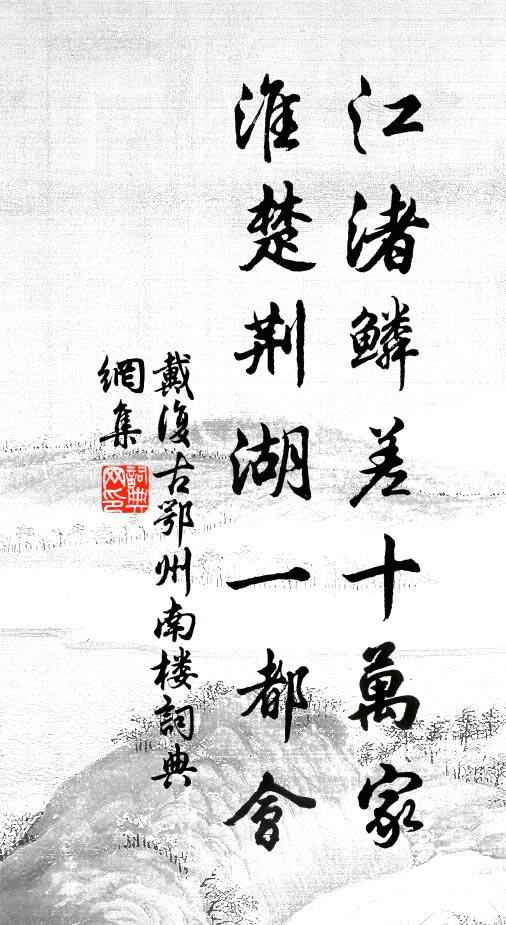 江渚鱗差十萬家
淮楚荆湖一都會
戴復古鄂州南楼詞典
網集
詞典网印